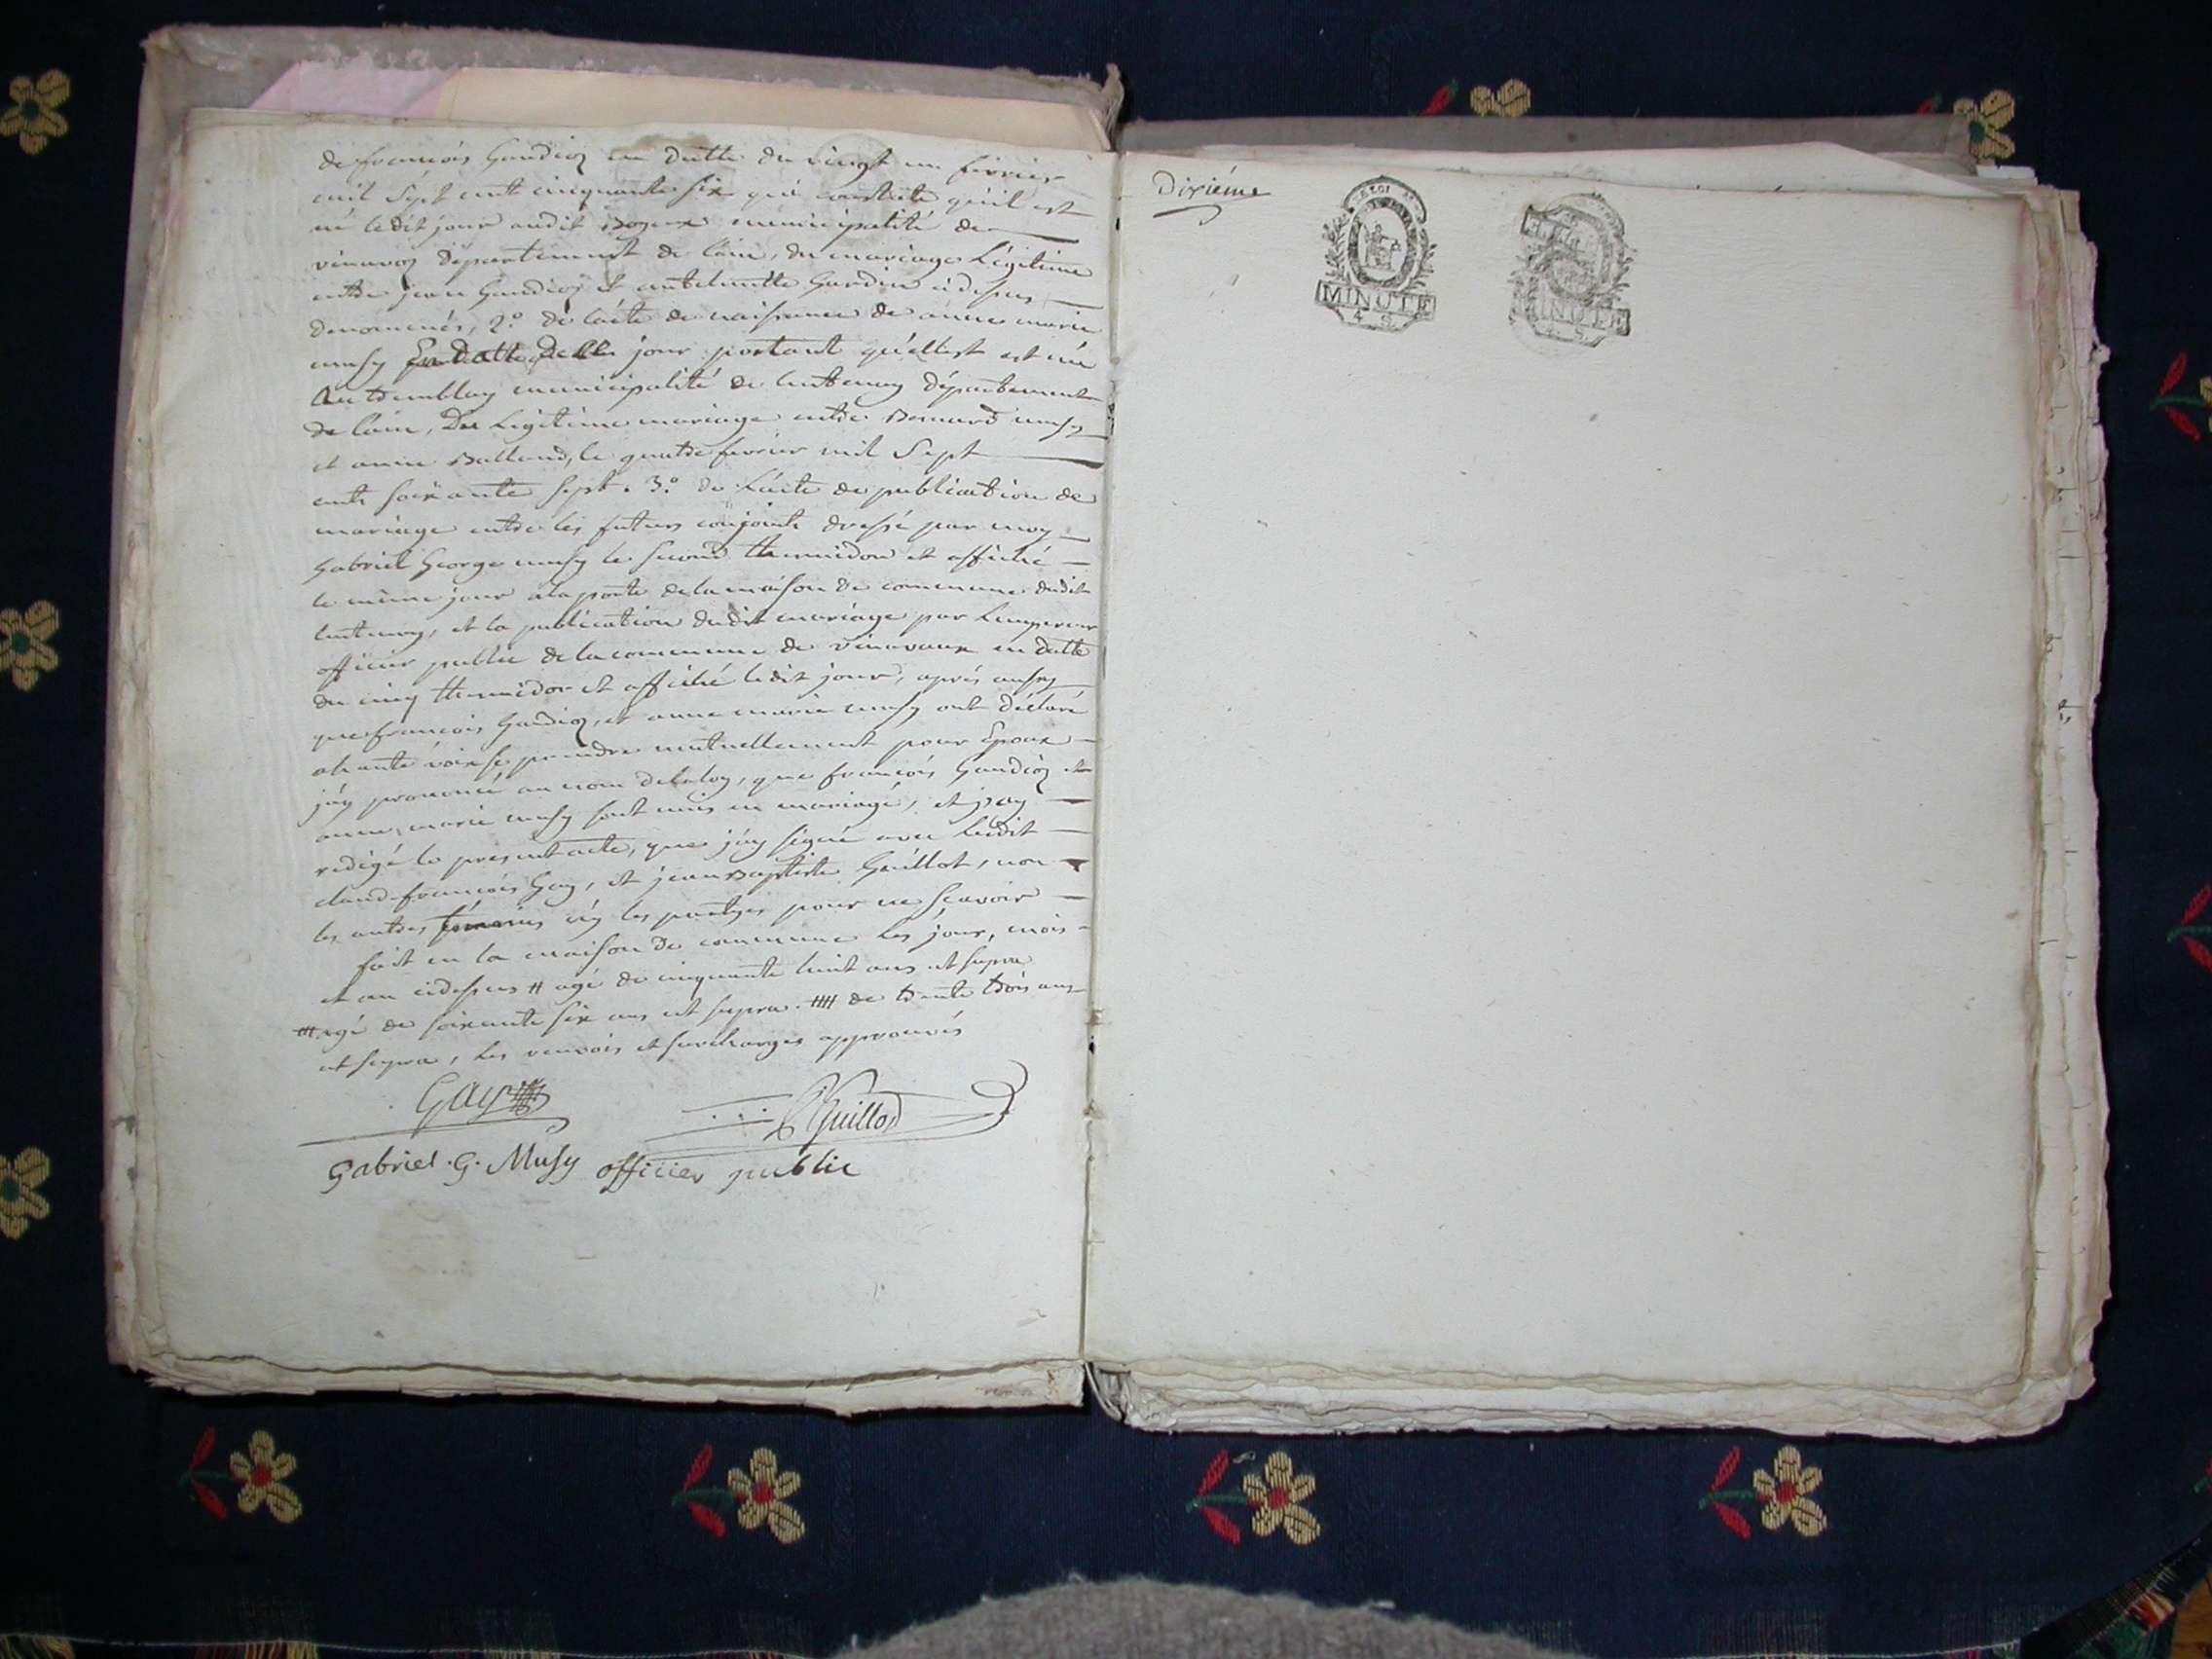 de francois Gaudioz en datte du vingt un fevrier
mil sept cent cinquante six qui constate qu'il est
né ledit jour audit municipalité de
vinavoz département de l'ain, du mariage Légitime
entre jean Gaudioz et antelmette Gardin cidessus
denommés, 2.° de l'acte de naissance de anne marie
musy En datte jour portant qu'elle est née
Au tremblay municipalité de lentenay département
de l'ain, Du Legitime mariage entre Bernard musy
et anne Balland, le quatre fevrier mil Sept
cent soixante sept. 3.° de l'acte de publication de
mariage entre les futurs conjoints dressé par moy
Gabriel George musy le second thermidor et affiché
le même jour a la porte de la maison de commune dudit
lentenay, et la publication dudit mariage par
officier public de la commune de vinavaux en datte
du cinq thermidor et affiché ledit jour, aprés aussy
que francois Gaudioz, et anne marie musy ont déclaré
a haute voix se prendre mutuellement pour Epoux
j'ay prononcé au nom de la loy, que francois Gaudioz et
anne marie musy sont unis en mariage, et j'ay
redigé le present acte, que j'ay signé avec ledit
claud francois Gay, et jean Baptiste Guillot, non
les autres témoins ny les partyes pour ne scavoir
fait en la maison de commune les jour, mois
et an cidessus # agé de cinquante huit ans ut supra
agé de soixante six ans ut supra. de trente trois ans
ut supra, les renvois et surcharges approuvés
Gay
Guillot
Gabriel .G. Musy officier public
Dixiéme
LA LOI
MINUTE
4 S
MINUTE